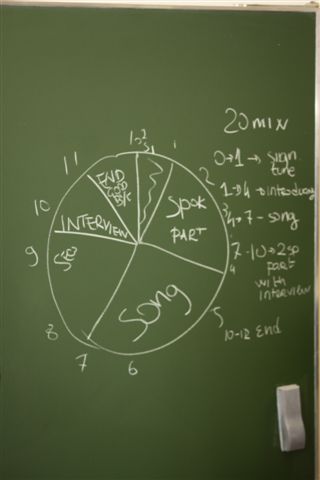 20 MIN
0→1 → sign
tune
1→4 → introducing
4→7 - song
7-10→2sp
part
with
interview
10-12 END
12
1
2
3
4
5
6
7
8
9
10
11
END
GOOD
BYE
INTERVIEW
SPOK
PART
SONG